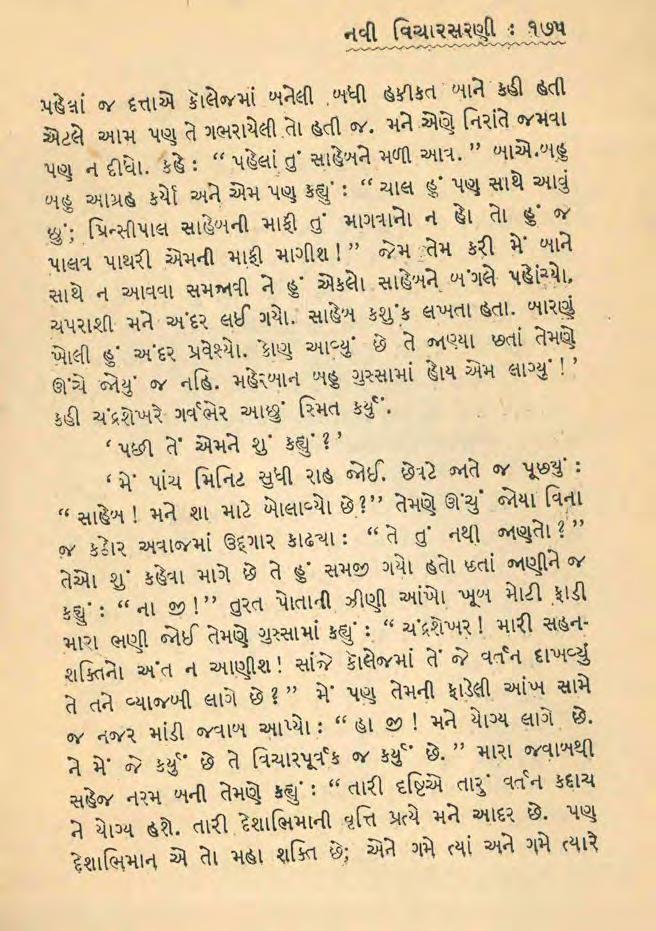 નવી વિચારસરણી : ૧૭૫
પહેલાં જ દત્તાએ કૉલેજમાં બનેલી બધી હકીકત બાને કહી હતી
એટલે આમ પણ તે ગભરાયેલી તો હતી જ. મને એણે નિરાંતે જમવા
પણ ન દીધો. કહે : “ પહેલાં તું સાહેબને મળી આવ. ” બાએ.બહુ
બહુ આગ્રહ કર્યો અને એમ પણ કહ્યું : “ ચાલ હું પણ સાથે આવું
છું; પ્રિન્સીપાલ સાહેબની માફી તું માગવાનો ન હો તો હું જ
પાલવ પાથરી એમની માફી માગીશ ! ” જેમ તેમ કરી મેં બાને
સાથે ન આવવા સમજાવી ને હું એકલો સાહેબને બંગલે પહોંચ્યો.
ચપરાશી મને અંદર લઈ ગયો. સાહેબ કશુંક લખતા હતા. બારણું
ખોલી હું અંદર પ્રવેશ્યો. કોણ આવ્યું છે તે જાણ્યા છતાં તેમણે
ઊંચે જોયું જ નહિ. મહેરબાન બહુ ગુસ્સામાં હોય એમ લાગ્યું ! ’
કહી ચંદ્રશેખરે ગર્વભેર આછું સ્મિત કર્યું.
‘ પછી તેં એમને શું કહ્યું ? ’
‘ મેં પાંચ મિનિટ સુધી રાહ જોઈ. છેવટે જાતે જ પૂછ્યું :
“ સાહેબ ! મને શા માટે બોલાવ્યો છે ? ” તેમણે ઊંચું જોયા વિના
જ કઠોર અવાજમાં ઉદ્દગાર કાઢ્યા : “ તે તું નથી જાણતો ? ”
તેઓ શું કહેવા માગે છે તે હું સમજી ગયો હતો છતાં જાણીને જ
કહ્યું : “ ના જી ! ” તુરત પોતાની ઝીણી આંખો ખૂબ મોટી ફાડી
મારા ભણી જોઈ તેમણે ગુસ્સામાં કહ્યું : “ ચંદ્રશેખર ! મારી સહન-
શક્તિનો અંત ન આણીશ ! સાંજે કૉલેજમાં તેં જે વર્તન દાખવ્યું
તે તને વ્યાજબી લાગે છે ? ” મેં પણ તેમની ફાડેલી આંખ સામે
જ નજર માંડી જવાબ આપ્યો : “ હા જી ! મને યોગ્ય લાગે છે.
ને મેં જે કર્યું છે તે વિચારપૂર્વક જ કર્યું છે. ” મારા જવાબથી
સહેજ નરમ બની તેમણે કહ્યું : “ તારી દૃષ્ટિએ તારું વર્તન કદાચ
ને યોગ્ય હશે. તારી દેશાભિમાની વૃત્તિ પ્રત્યે મને આદર છે. પણ
દેશાભિમાન એ તો મહા શક્તિ છે; એને ગમે ત્યાં અને ગમે ત્યારે